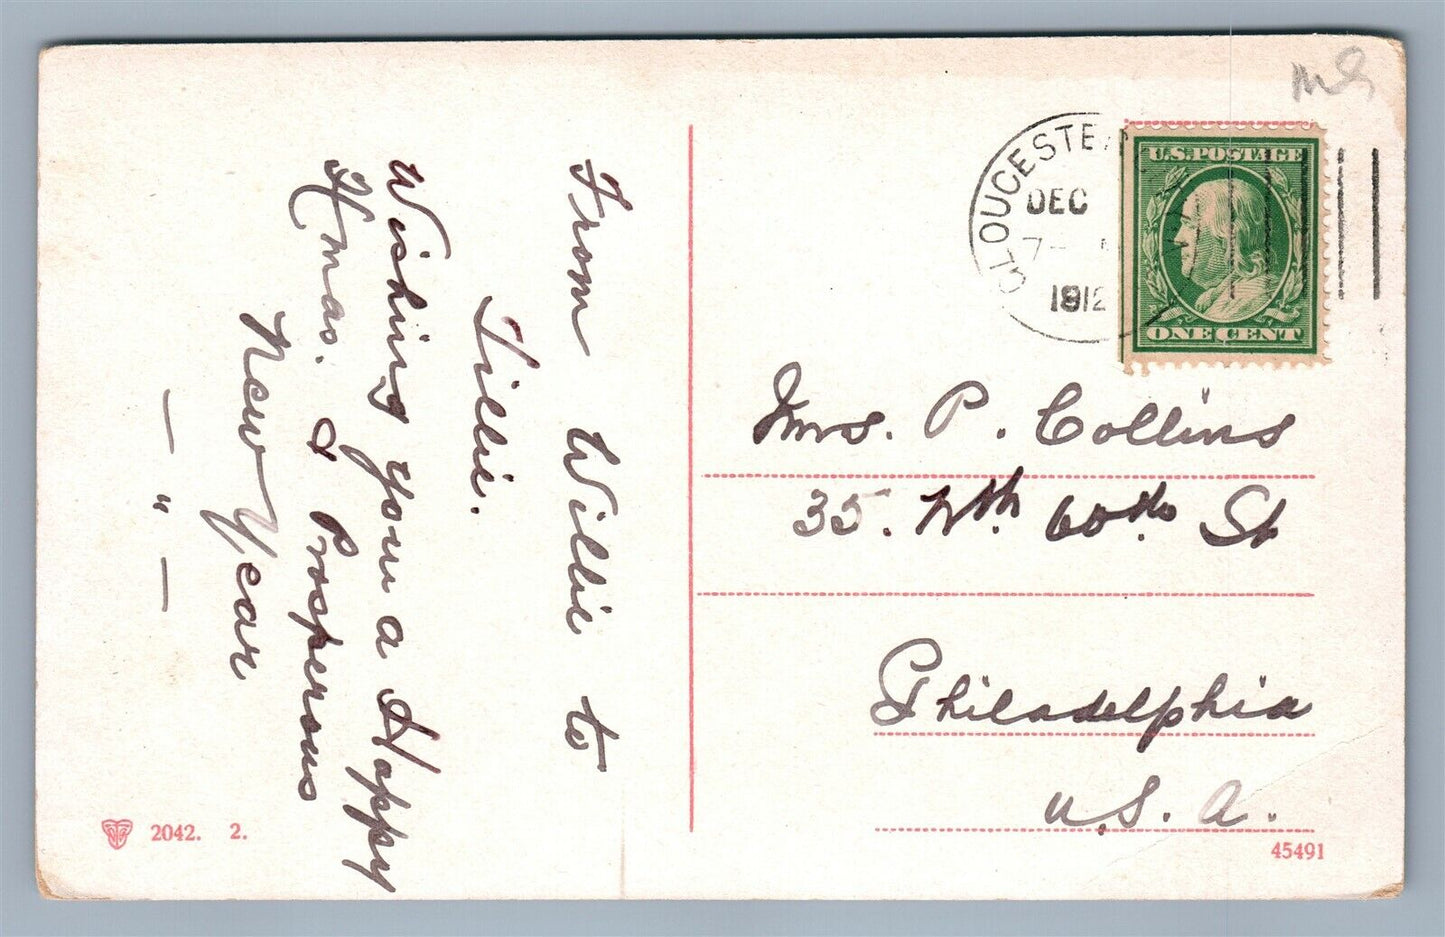 From Willie to
Tillie.
Wishing you a Happy
Xmas. & Prosperous
New Year
— " —
2042. 2.
GLOUCESTE
DEC
7-
1912
U.S.POSTAGE
ONE CENT
Mrs. P. Collins
35. Nth 60th St
Philadelphia
U.S. A.
45491